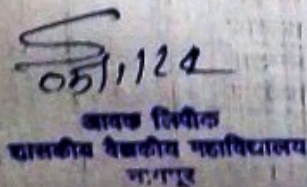 05/1/24
आवक लिपीक
शासकीय वैद्यकीय महाविद्यालय
नागपूर